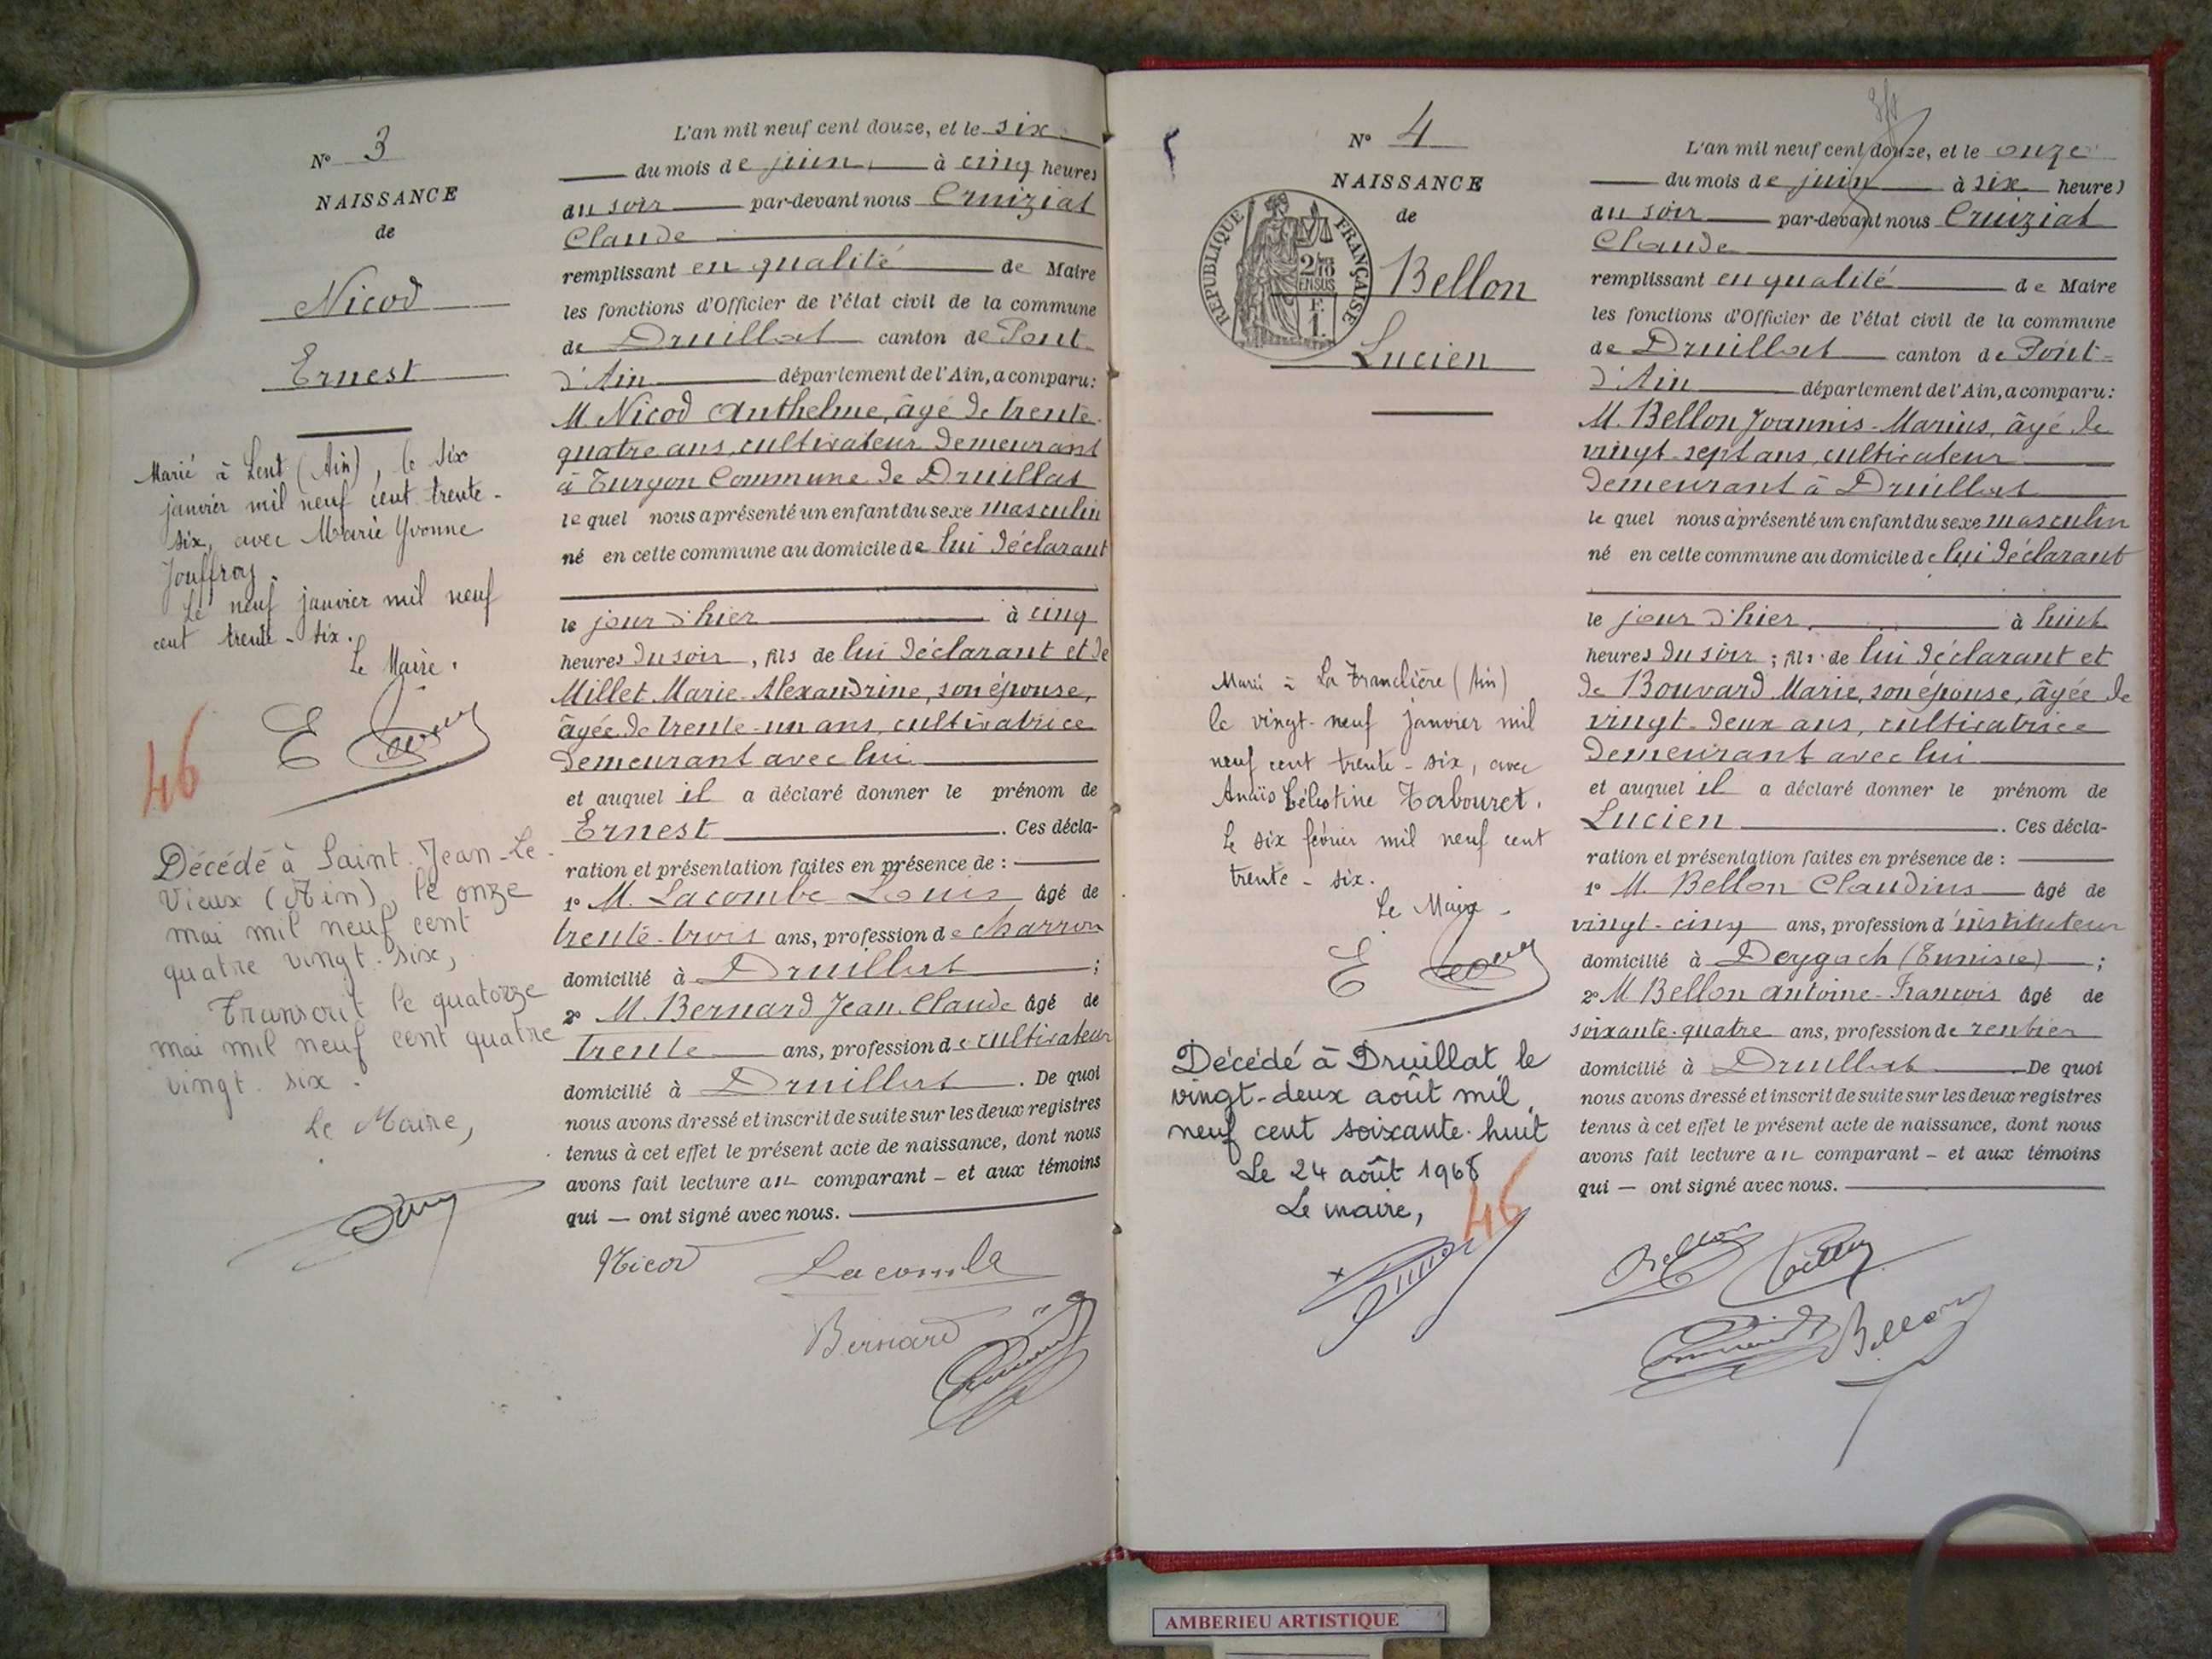 N° 3
NAISSANCE
de
Nicod
Ernest
Marié à Lent (Ain), le six
janvier mil neuf cent trente-
six, avec Marie Yvonne
Jouffroy.
Le neuf janvier mil neuf
cent trente-six.
Le Maire.
46
Décédé à Saint-Jean-Le-
Vieux (Ain), le onze
mai mil neuf cent
quatre vingt-six,
Transcrit le quatorze
mai mil neuf cent quatre
vingt-six.
Le Maire,
L'an mil neuf cent douze, et le six
du mois de juin, à cinq heures
du soir par-devant nous Cruiziat
Claude
remplissant en qualité de Maire
les fonctions d'Officier de l'état civil de la commune
de Druillat canton de Pont-
d'Ain département de l'Ain, a comparu:
M. Nicod Anthelme, âgé de trente-
quatre ans, cultivateur demeurant
à Turgon Commune de Druillat
lequel nous a présenté un enfant du sexe masculin
né en cette commune au domicile de lui déclarant
le jour d'hier à cinq
heures du soir, fils de lui déclarant et de
Millet Marie-Alexandrine, son épouse,
âgée de trente-un ans, cultivatrice
demeurant avec lui
et auquel il a déclaré donner le prénom de
Ernest. Ces décla-
ration et présentation faites en présence de :
1° M. Lacombe Louis âgé de
trente-trois ans, profession de charron
domicilié à Druillat ;
2° M. Bernard Jean-Claude âgé de
trente ans, profession de cultivateur
domicilié à Druillat. De quoi
nous avons dressé et inscrit de suite sur les deux registres
tenus à cet effet le présent acte de naissance, dont nous
avons fait lecture au comparant - et aux témoins
qui — ont signé avec nous.
Nicod Lacombe
Bernard
N° 4
NAISSANCE
de
RÉPUBLIQUE FRANÇAISE
2/10
EN SUS
F.
1.
Bellon
Lucien
Marié à La Tranclière (Ain)
le vingt-neuf janvier mil
neuf cent trente-six, avec
Anaïs Célestine Tabouret.
Le six février mil neuf cent
trente-six.
Le Maire
Décédé à Druillat le
vingt-deux août mil
neuf cent soixante-huit
Le 24 août 1968
Le maire,
46
L'an mil neuf cent douze, et le onze
du mois de juin à six heures
du soir par-devant nous Cruiziat
Claude
remplissant en qualité de Maire
les fonctions d'Officier de l'état civil de la commune
de Druillat canton de Pont-
d'Ain département de l'Ain, a comparu:
M. Bellon Joannis-Marius, âgé de
vingt-sept ans, cultivateur
demeurant à Druillat
lequel nous a présenté un enfant du sexe masculin
né en cette commune au domicile de lui déclarant
le jour d'hier, à huit
heures du soir ; fils de lui déclarant et
de Bouvard Marie, son épouse, âgée de
vingt-deux ans, cultivatrice
demeurant avec lui
et auquel il a déclaré donner le prénom de
Lucien. Ces décla-
ration et présentation faites en présence de :
1° M. Bellon Claudius âgé de
vingt-cinq ans, profession d'instituteur
domicilié à (Tunisie) ;
2° M. Bellon Antoine-François âgé de
soixante-quatre ans, profession de rentier
domicilié à Druillat De quoi
nous avons dressé et inscrit de suite sur les deux registres
tenus à cet effet le présent acte de naissance, dont nous
avons fait lecture au comparant - et aux témoins
qui — ont signé avec nous.
Bellon
Bellon
AMBERIEU ARTISTIQUE